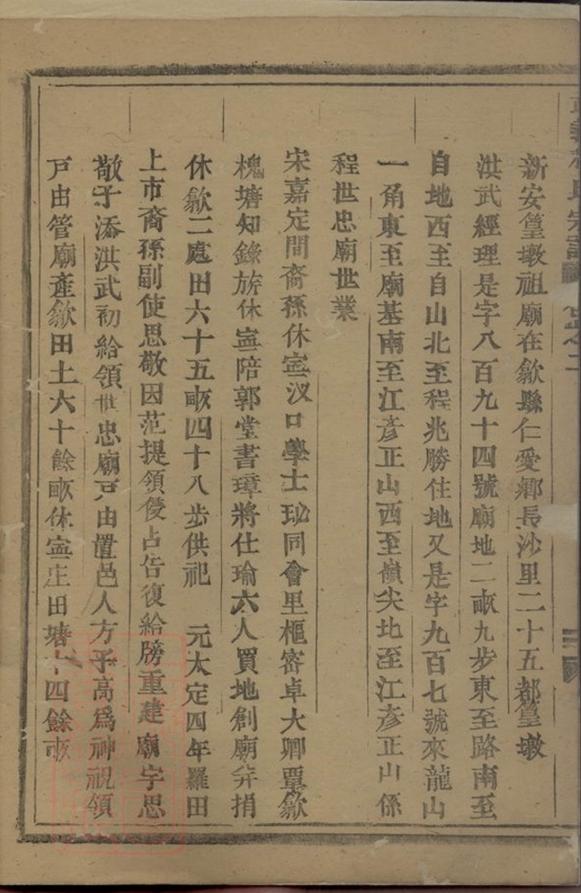 新安篁墩祖廟在歙縣仁愛鄉長沙里二十五都篁墩
洪武經理是字八百九十四號廟地二畝九步東至路南至
自地西至自山北至程兆勝住地又是字九百七號來龍山
一角東至廟基南至江彥正山西至嶺尖北至江彥正山係
程世忠廟世業
宋嘉定間裔孫休寧汊口學士珌同會里樞密卓大卿覃歙
槐塘知錄放休寧陪郭堂書璋將仕瑜六人買地創廟并捐
休歙二處田六十五畝四十八步供祀 元太定四年羅田
上市裔孫副使思敬因范提領侵占告復給牓重建廟宇思
敬子添洪武初給領世忠廟戶由置邑人方子高為神祝領
戶由管廟產歙田土六十餘畝休寧庄田塘 四餘畝